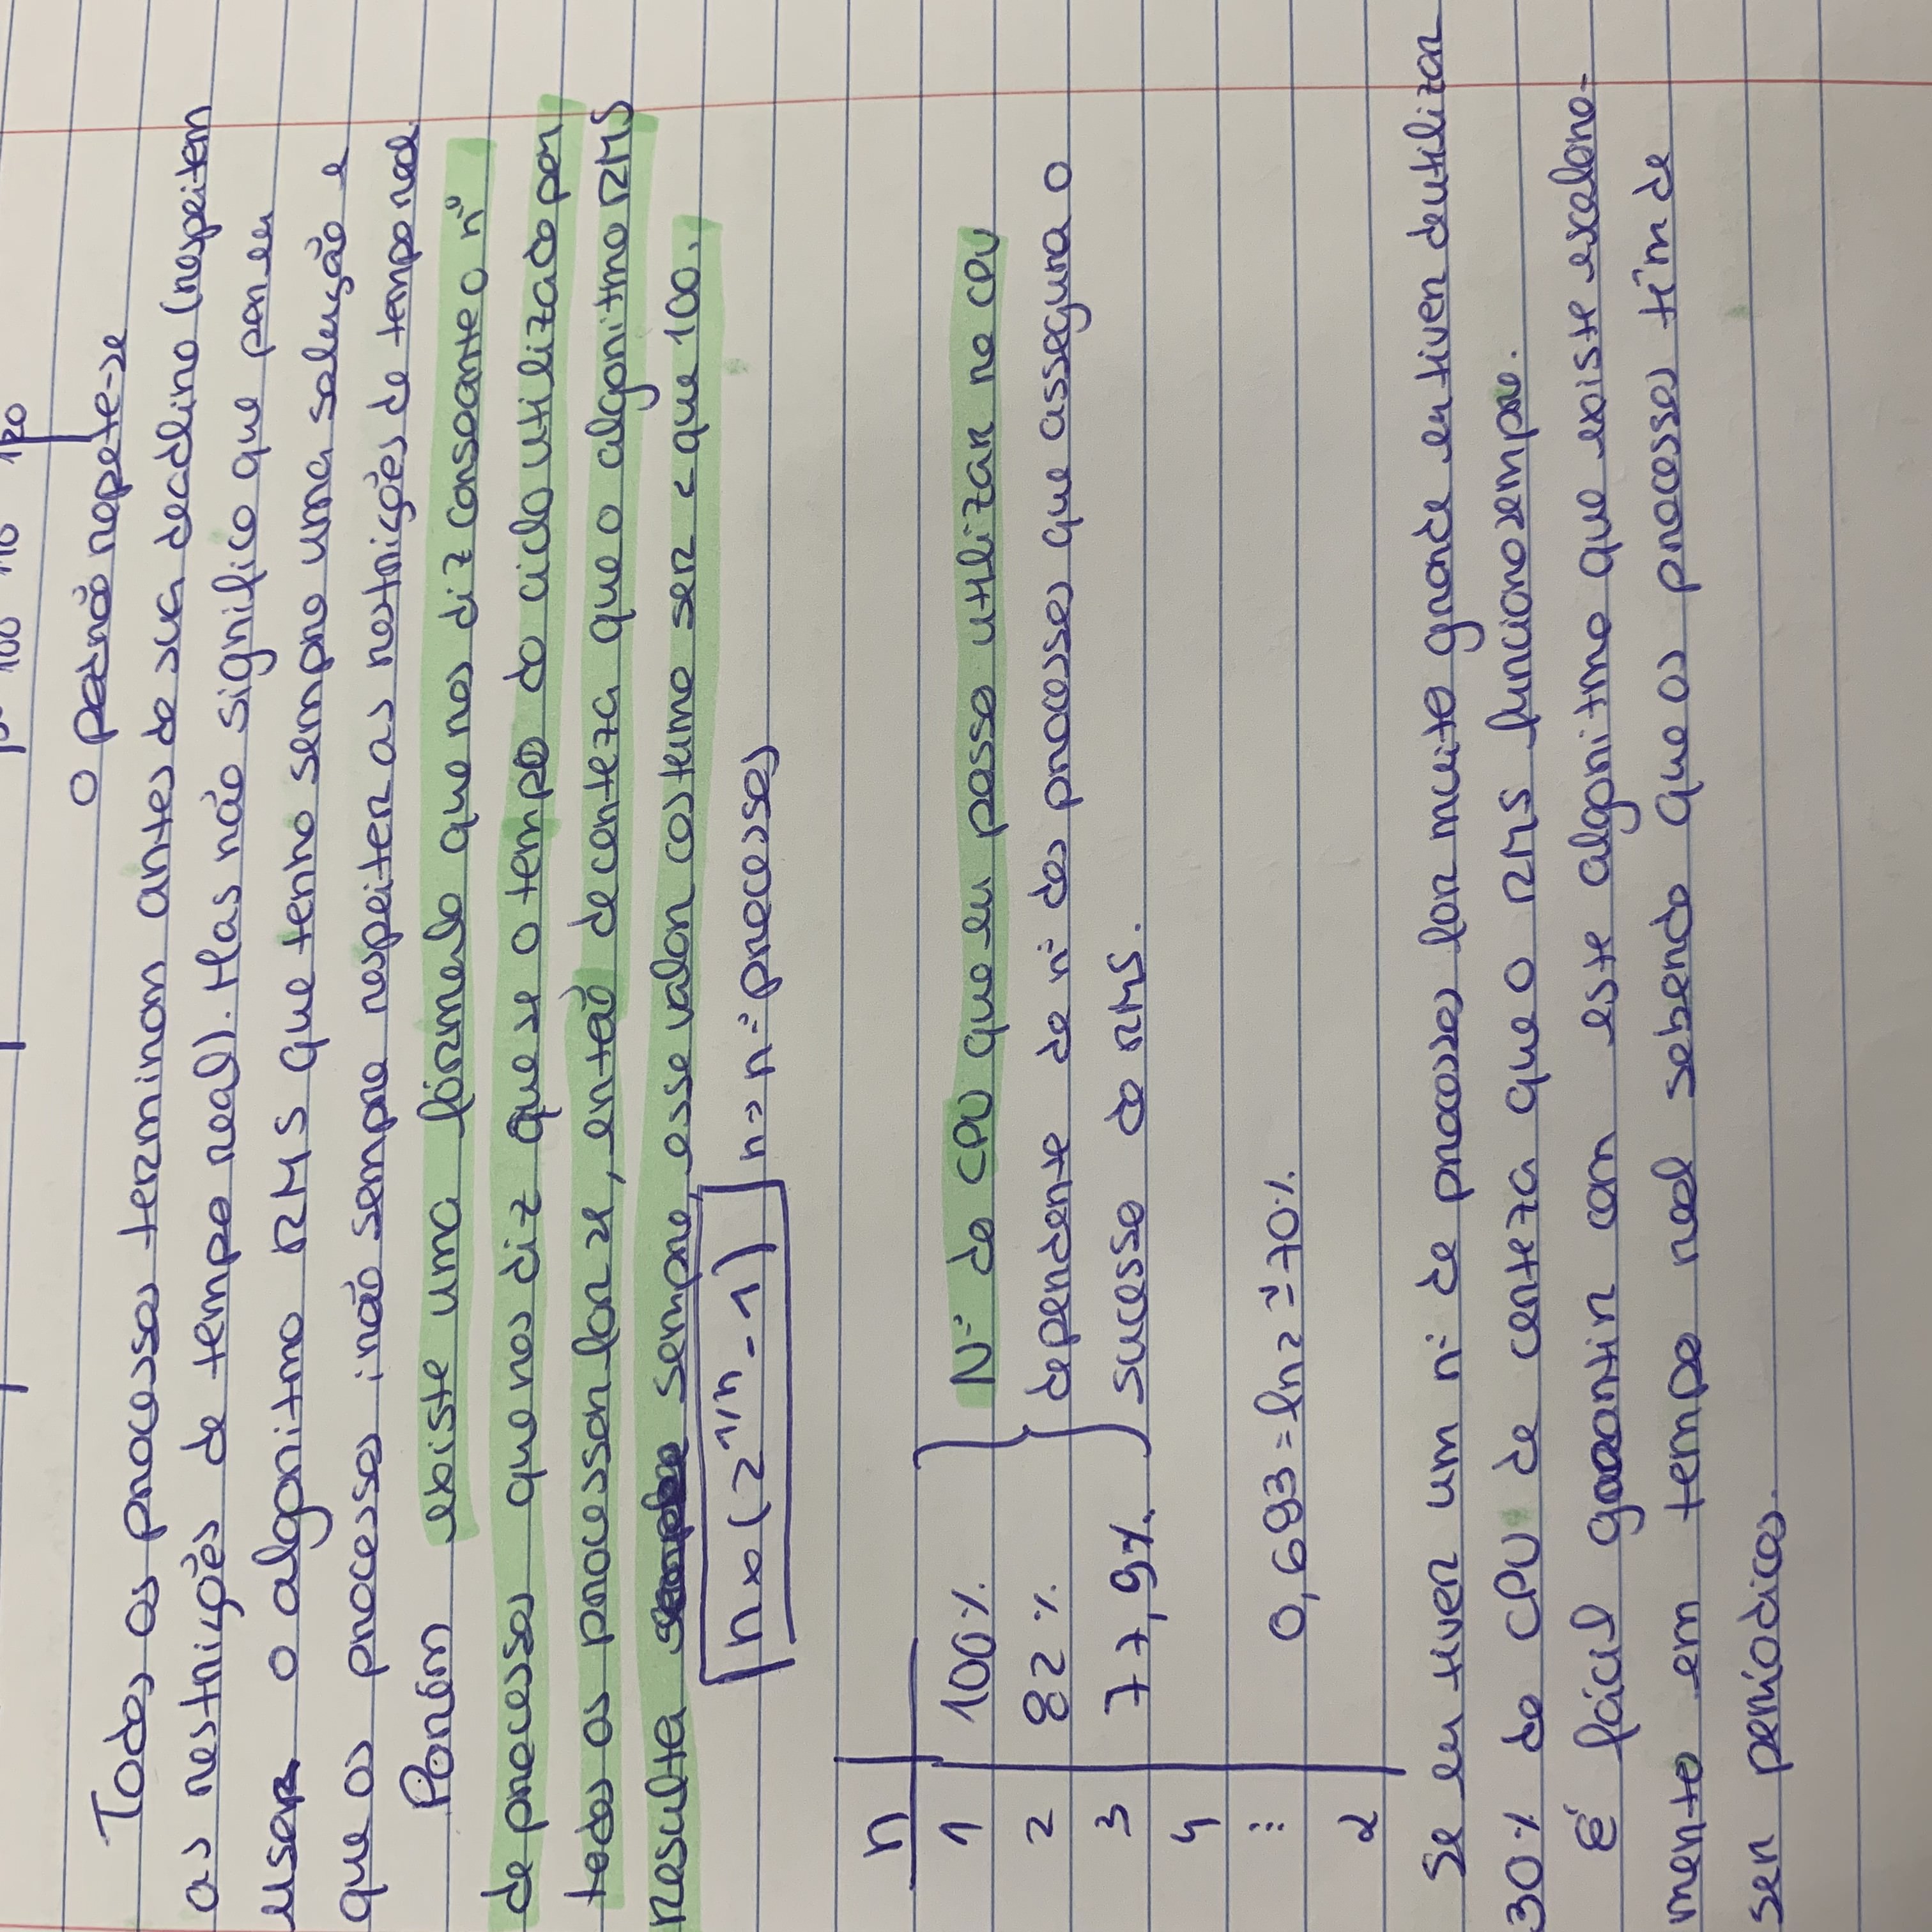 100 110 120
O padrão repete-se
Todos os processos terminam antes de sua deadline (respeitem
as restrições de tempo real). Mas não significa que por eu
user o algoritmo RMS que tenho sempre uma solução e
que os processos não sempre respeiter as restrições de tempo real.
Porém existe uma fórmula que nos diz consoante o nº
de processos que nos diz que se o tempo do ciclo utilizado por
todos os processor for x, então de certeza que o algoritmo RMS
resulta sempre, esse valor costuma ser < que 100.
n × (2^1/n - 1) n → nº processos
n
1 100%
2 82%
3 77,9%
Nº do CPU que eu posso utilizar no CPU
dependente do nº dos processos que assegura o
sucesso do RMS.
4
⋮ 0,693 = ln 2 ≃ 70%
Se eu tiver um nº de processos for muito grande eu tiver de utilizar
30% do CPU de certeza que o RMS funciona sempre.
É fácil garantir com este algoritmo que existe escalona-
mento em tempo real sabendo que os processos têm de
ser periódicos.